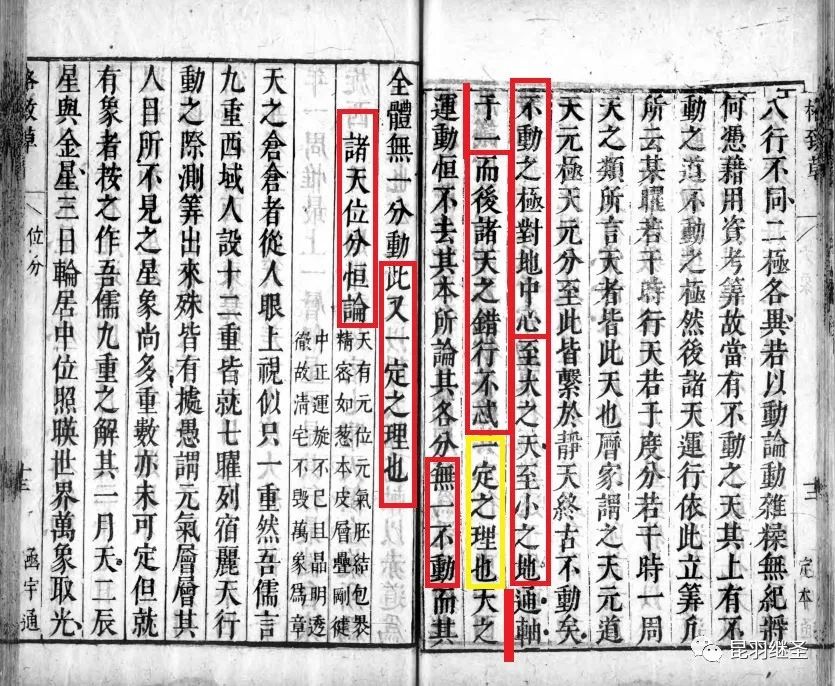 格致草
八行不同二極各異若以動論動雜糅無紀將
何憑藉用資考筭故當有不動之天其上有不
動之道不動之極然後諸天運行依此立筭凡
所云某曜若干時行天若干度分若干時一周
天之類所言天者皆此天也曆家謂之天元道
天元極天元分至此皆繫於靜天終古不動矣
不動之極對地中心至大之天至小之地通軸
于一而後諸天之錯行不忒一定之理也天之
運動恒不去其本所論其各分無一不動而其
全體無一分動此又一定之理也
諸天位分恒論
天有元位元氣胚結包褁
精密如葱本皮層疊剛健
中正運旋不已且晶明透
徹故清宅不毀萬象為章
天之倉倉者從人眼上視似只一重然吾儒言
九重西域人設十二重皆就七曜列宿麗天行
動之際測筭出來殊皆有據愚謂元氣層層其
人目所不見之星象尚多重數亦未可定但就
有象者按之作吾儒九重之解其一月天二辰
星與金星三日輪居中位照暎世界萬象取光
格致草
位分
十三
函宇通
昆羽继圣